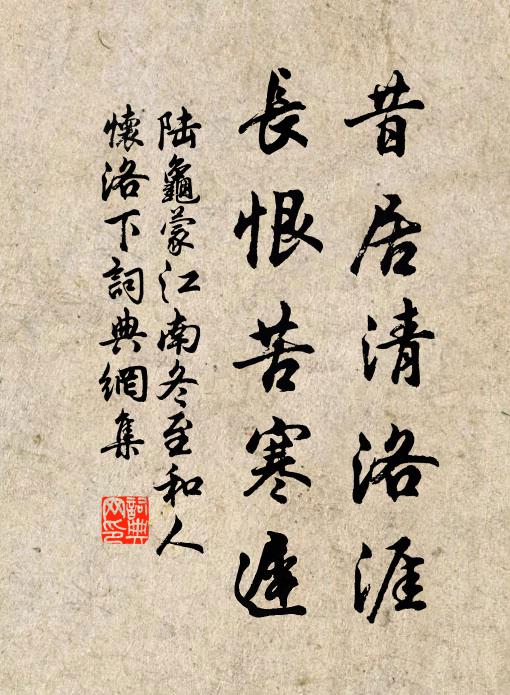 昔居清洛涯
長恨苦寒遲
陸龜蒙江南冬至和人
懷洛下詞典網集
詞典
网印